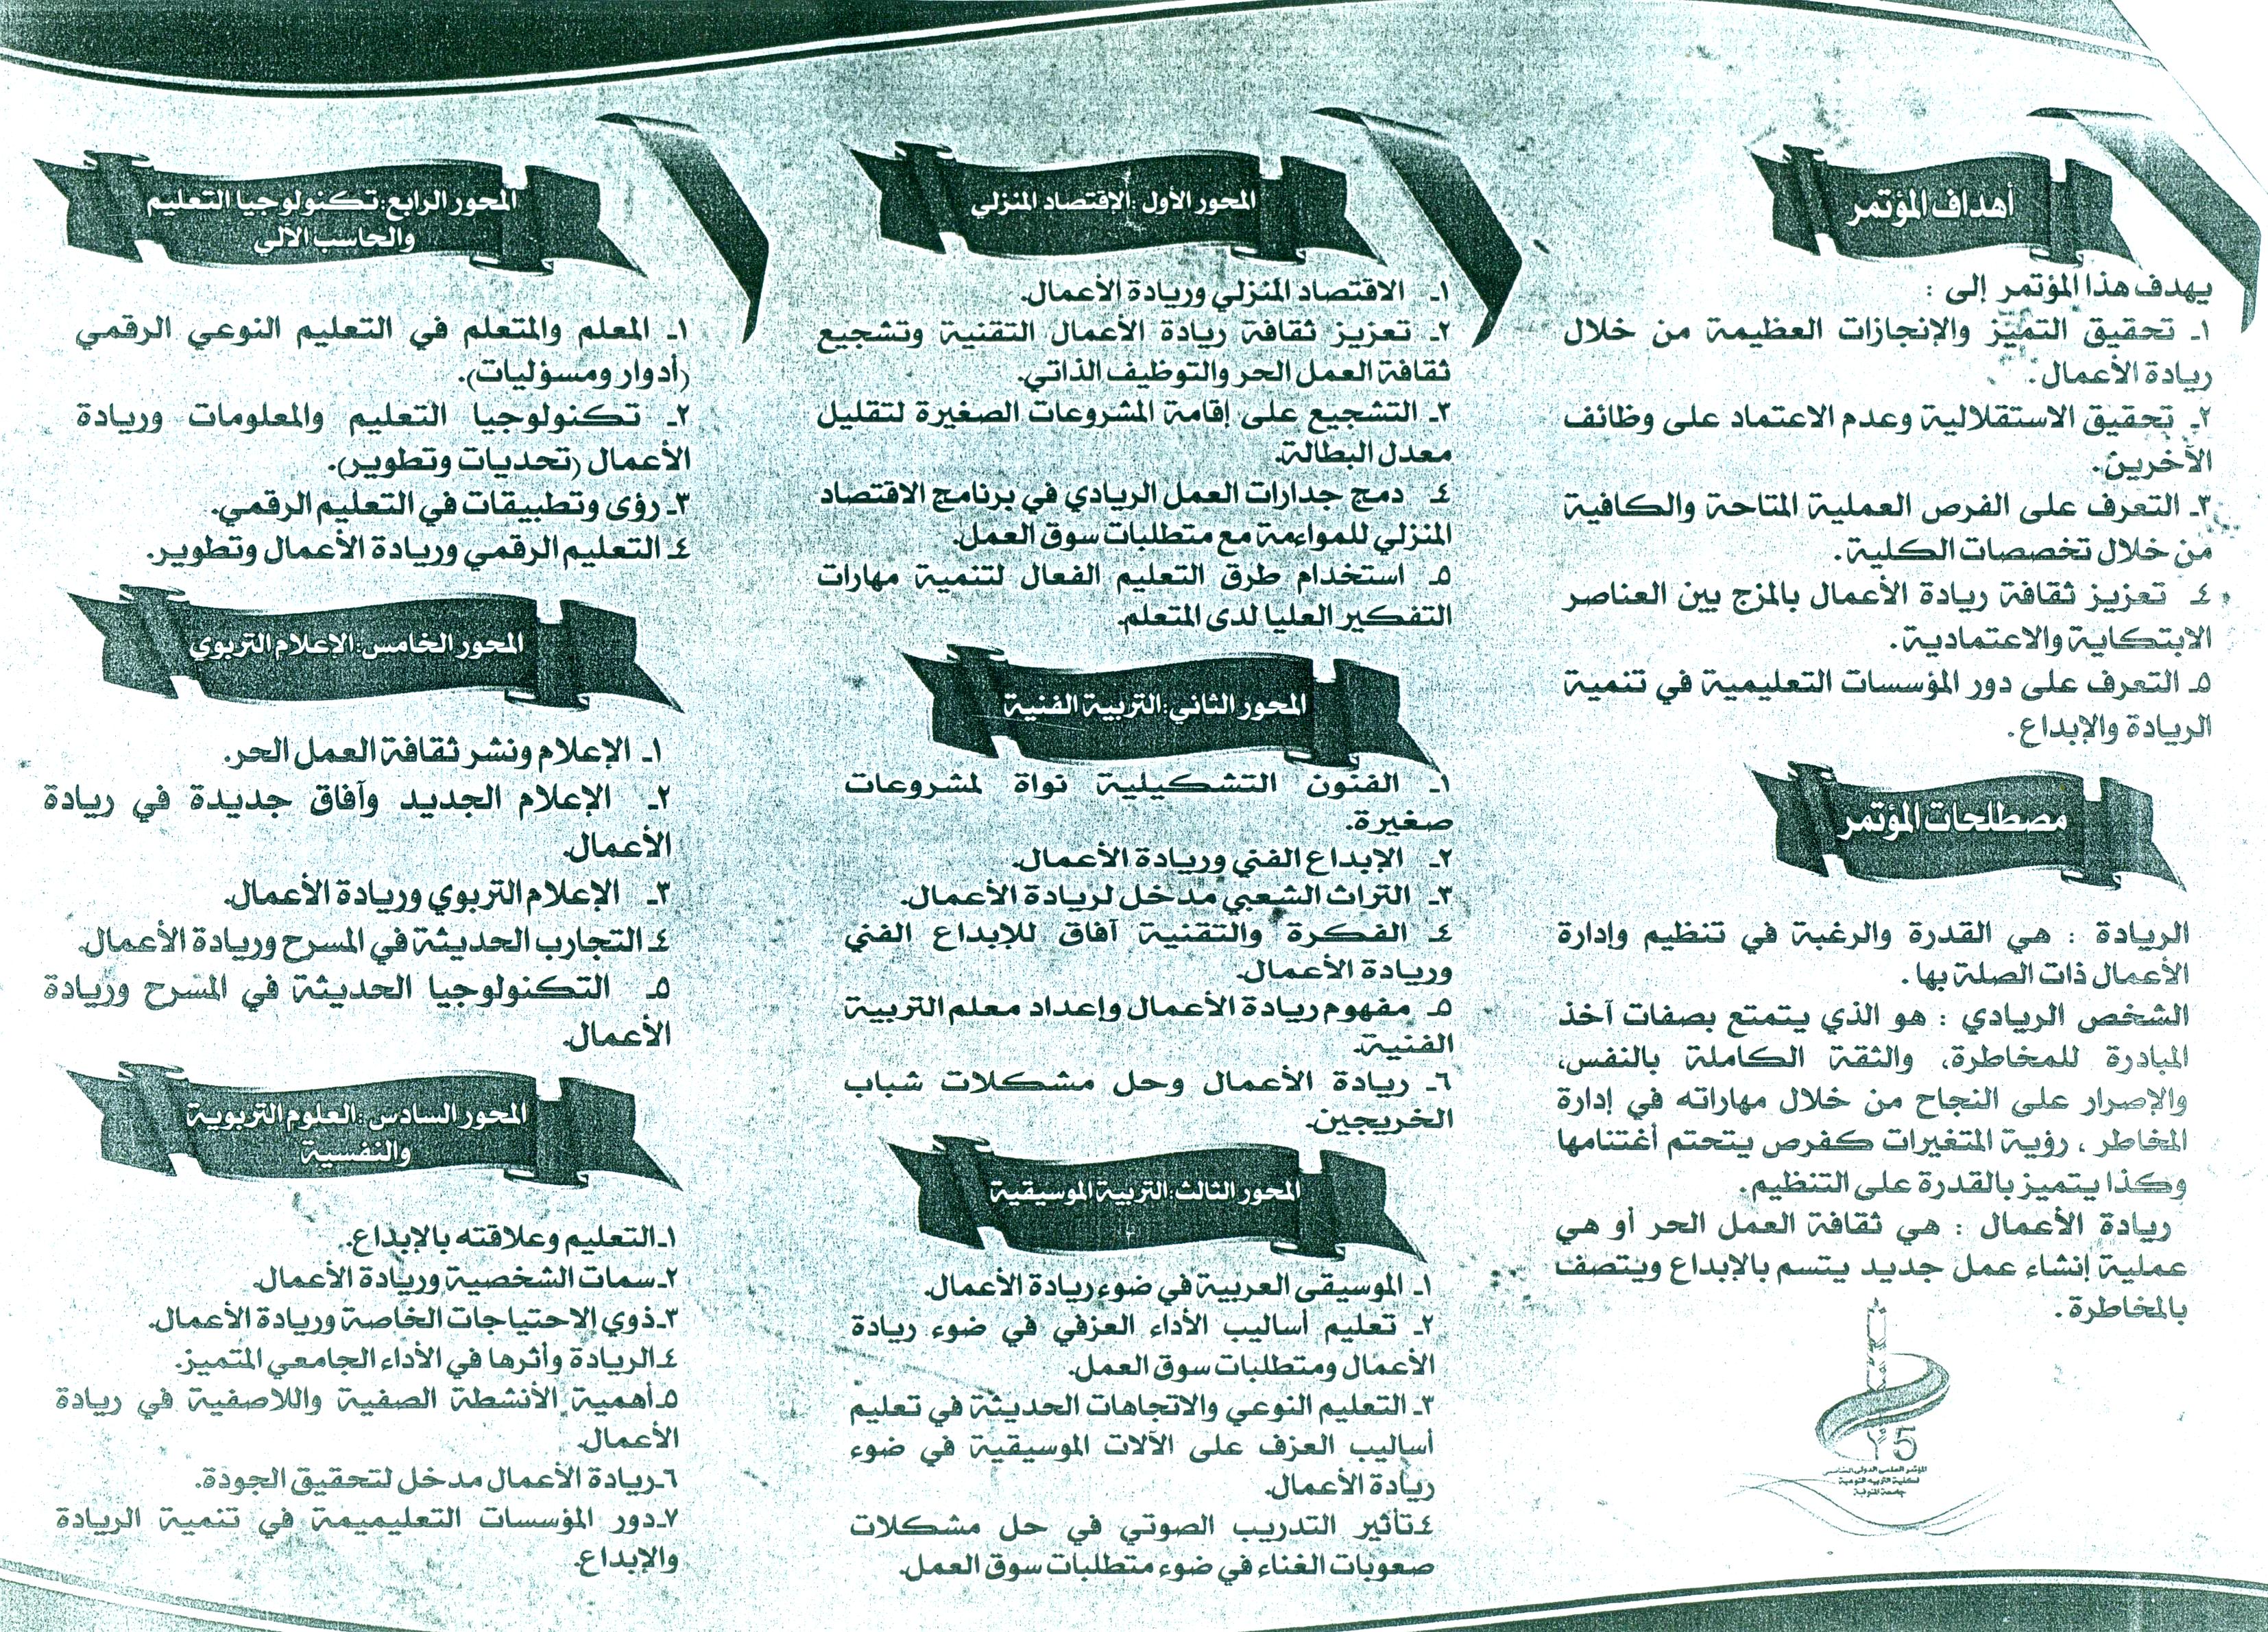 أهداف المؤتمر
يهدف هذا المؤتمر إلى :
١ـ تحقيق التميز والإنجازات العظيمة من خلال
ريادة الأعمال.
٢ـ تحقيق الاستقلالية وعدم الاعتماد على وظائف
الآخرين.
٣ـ التعرف على الفرص العملية المتاحة والكافية
من خلال تخصصات الكلية.
٤ـ تعزيز ثقافة ريادة الأعمال بالمزج بين العناصر
الابتكاية والاعتمادية.
٥ـ التعرف على دور المؤسسات التعليمية في تنمية
الريادة والإبداع.
مصطلحات المؤتمر
الريادة : هي القدرة والرغبة في تنظيم وإدارة
الأعمال ذات الصلة بها.
الشخص الريادي : هو الذي يتمتع بصفات آخذ
المبادرة للمخاطرة، والثقة الكاملة بالنفس،
والإصرار على النجاح من خلال مهاراته في إدارة
المخاطر ، رؤية المتغيرات كفرص يتحتم أغتنامها
وكذا يتميز بالقدرة على التنظيم.
ريادة الأعمال : هي ثقافة العمل الحر أو هي
عملية إنشاء عمل جديد يتسم بالإبداع ويتصف
بالمخاطرة.
المؤتمر العلمي الدولي
لكلية التربية النوعية
جامعة المنوفية
المحور الأول :الاقتصاد المنزلي
١ـ الاقتصاد المنزلي وريادة الأعمال.
٢ـ تعزيز ثقافة ريادة الأعمال التقنية وتشجيع
ثقافة العمل الحر والتوظيف الذاتي.
٣ـ التشجيع على إقامة المشروعات الصغيرة لتقليل
معدل البطالة.
٤ـ دمج جدارات العمل الريادي في برنامج الاقتصاد
المنزلي للمواءمة مع متطلبات سوق العمل.
٥ـ استخدام طرق التعليم الفعال لتنمية مهارات
التفكير العليا لدى المتعلم.
المحور الثاني:التربية الفنية
١ـ الفنون التشكيلية نواة لمشروعات
صغيرة.
٢ـ الإبداع الفني وريادة الأعمال.
٣ـ التراث الشعبي مدخل لريادة الأعمال.
٤ـ الفكرة والتقنية آفاق للإبداع الفني
وريادة الأعمال.
٥ـ مفهوم ريادة الأعمال وإعداد معلم التربية
الفنية.
٦ـ ريادة الأعمال وحل مشكلات شباب
الخريجين.
المحور الثالث:التربية الموسيقية
١ـ الموسيقى العربية في ضوء ريادة الأعمال.
٢ـ تعليم أساليب الأداء العزفي في ضوء ريادة
الأعمال ومتطلبات سوق العمل.
٣ـ التعليم النوعي والاتجاهات الحديثة في تعليم
أساليب العزف على الآلات الموسيقية في ضوء
ريادة الأعمال.
٤ـ تأثير التدريب الصوتي في حل مشكلات
صعوبات الغناء في ضوء متطلبات سوق العمل.
المحور الرابع:تكنولوجيا التعليم
والحاسب الآلي
١ـ المعلم والمتعلم في التعليم النوعي الرقمي
(أدوار ومسؤليات).
٢ـ تكنولوجيا التعليم والمعلومات وريادة
الأعمال (تحديات وتطوير).
٣ـ رؤى وتطبيقات في التعليم الرقمي.
٤ـ التعليم الرقمي وريادة الأعمال وتطوير.
المحور الخامس:الإعلام التربوي
١ـ الإعلام ونشر ثقافة العمل الحر.
٢ـ الإعلام الجديد وآفاق جديدة في ريادة
الأعمال.
٣ـ الإعلام التربوي وريادة الأعمال.
٤ـ التجارب الحديثة في المسرح وريادة الأعمال.
٥ـ التكنولوجيا الحديثة في المسرح وريادة
الأعمال.
المحور السادس :العلوم التربوية
والنفسية
١ـ التعليم وعلاقته بالإبداع.
٢ـ سمات الشخصية وريادة الأعمال.
٣ـ ذوي الاحتياجات الخاصة وريادة الأعمال.
٤ـ الريادة وأثرها في الأداء الجامعي المتميز.
٥ـ أهمية الأنشطة الصفية واللاصفية في ريادة
الأعمال.
٦ـ ريادة الأعمال مدخل لتحقيق الجودة.
٧ـ دور المؤسسات التعليميمة في تنمية الريادة
والإبداع.